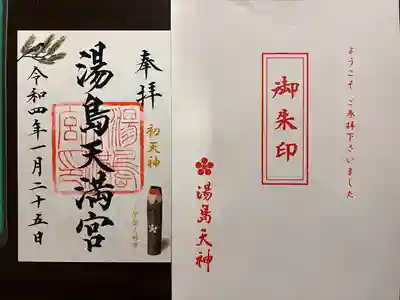 奉拝
初天神
湯島天満宮
令和四年一月二十五日
ようこそ、ご参拝下さいました
御朱印
湯島天神